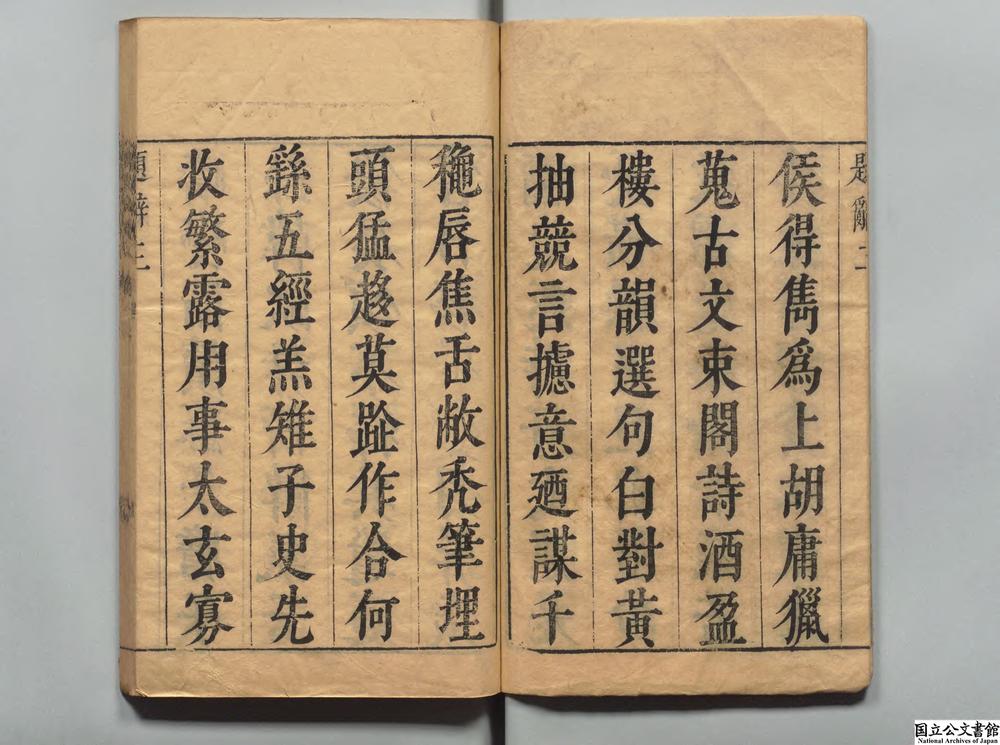 題辭二
侯得雋爲上胡庸獵
蒐古文束閣詩酒盈
樓分韻選句白對黃
抽競言攄意廼謀千
穐唇焦舌敝禿筆埋
頭猛趍莫跐作合何
繇五經羔雉子史先
收繁露用事太玄寡
題辭三
国立公文書館
National Archives of Japan